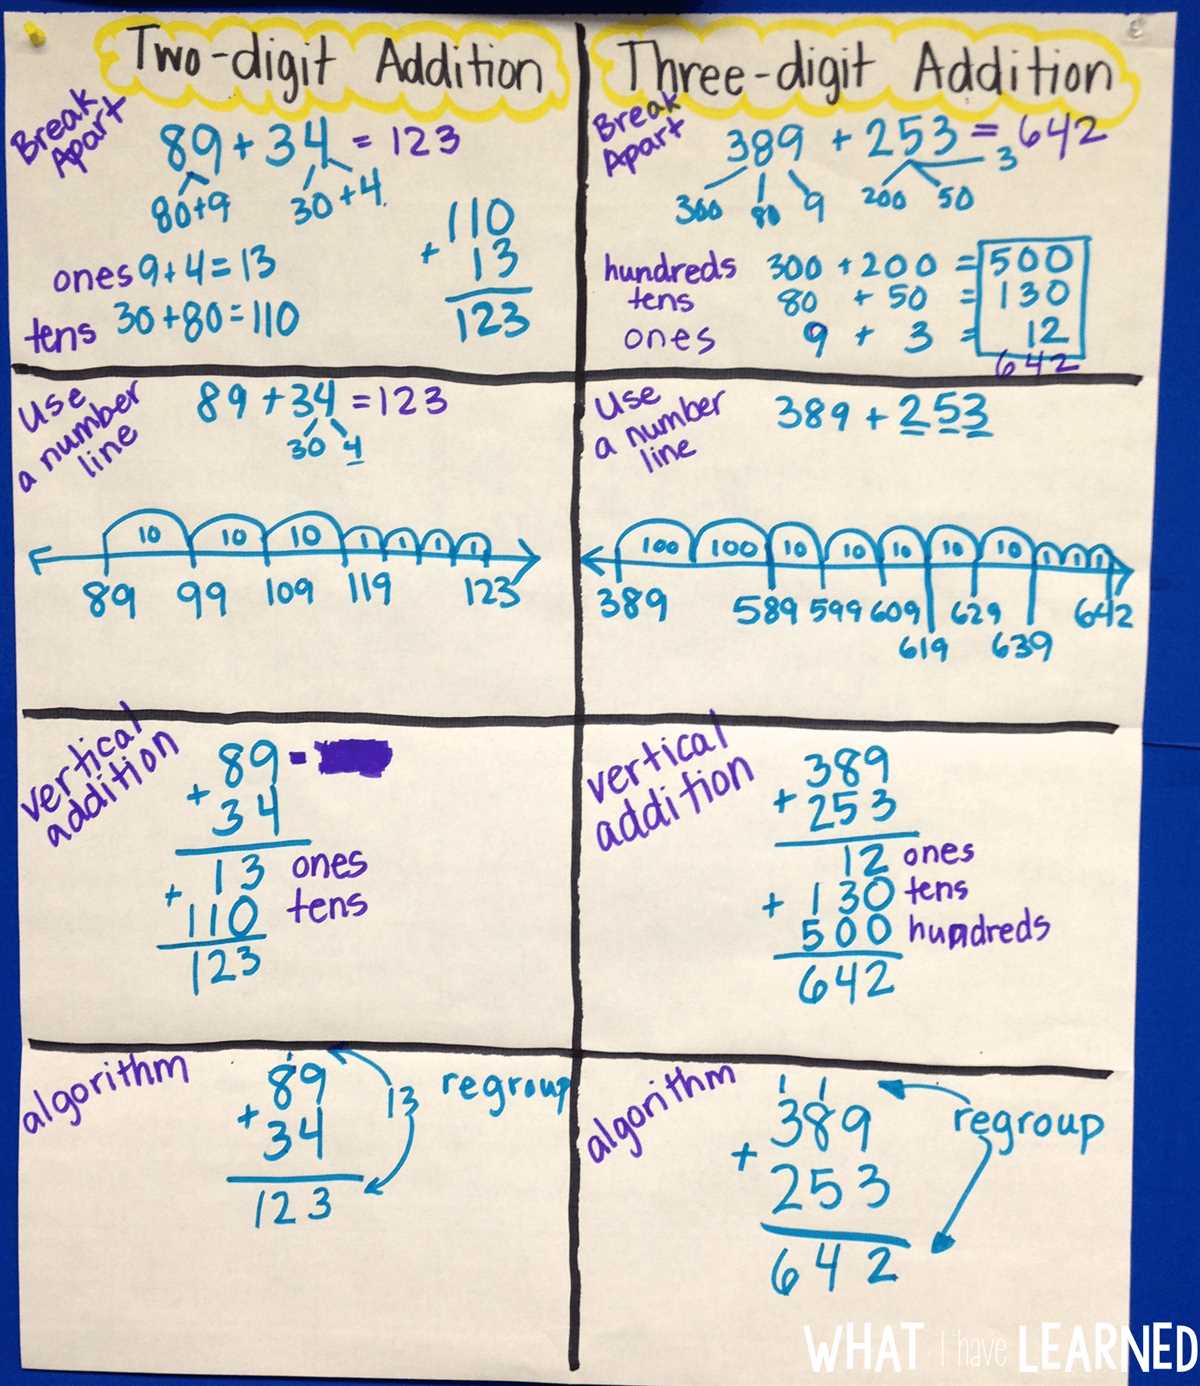 Two-digit Addition
Break Apart
89 + 34 = 123
80+9 30+4
ones 9+4=13
tens 30+80=110
110
+ 13
123
Use a number line
89 + 34 = 123
30 4
10 10 10 1 1 1 1
89 99 109 119 123
vertical addition
89 =
+ 34
13 ones
+ 110 tens
123
algorithm
1
89
+ 34
123
13 regroup
Three-digit Addition
Break Apart
389 + 253 = 642
300 80 9 200 50 3
hundreds 300 + 200 = 500
tens 80 + 50 = 130
ones 9 + 3 = 12
642
Use a number line
389 + 253
100 100 10 10 10 10 10 1 1 1
389 589 599 609 619 629 639 642
vertical addition
389
+ 253
12 ones
+ 130 tens
500 hundreds
642
algorithm
1 1
389
+ 253
642
regroup
WHAT I have LEARNED